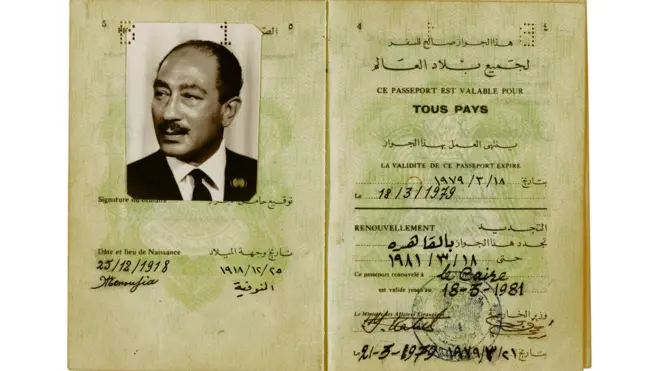 5
٥
Signature du titulaire
توقيع حامل
Date et lieu de Naissance
تاريخ وجهة الميلاد
25/12/1918
١٩١٨/١٢/٢٥
Menoufia
المنوفية
4
٤
هذا الجواز صالح للسفر
لجميع بلاد العالم
CE PASSEPORT EST VALABLE POUR
TOUS PAYS
ينتهى العمل بهذا الجواز
LA VALIDITE DE CE PASSEPORT EXPIRE
بتاريخ ١٩٧٩/٣/١٨
Le 18/3/1979
RENOUVELLEMENT
التجديد
تجدد هذا الجواز بالقاهره
حتى ١٩٨١/٣/١٨
Ce passeport renouvelé à le Caire
est valide jusqu'au 18-3-1981
Le Ministre des Affaires Etrangères
وزير الخارجية
Le 21-3-1979
بتاريخ ١٩٧٩/٣/٢١